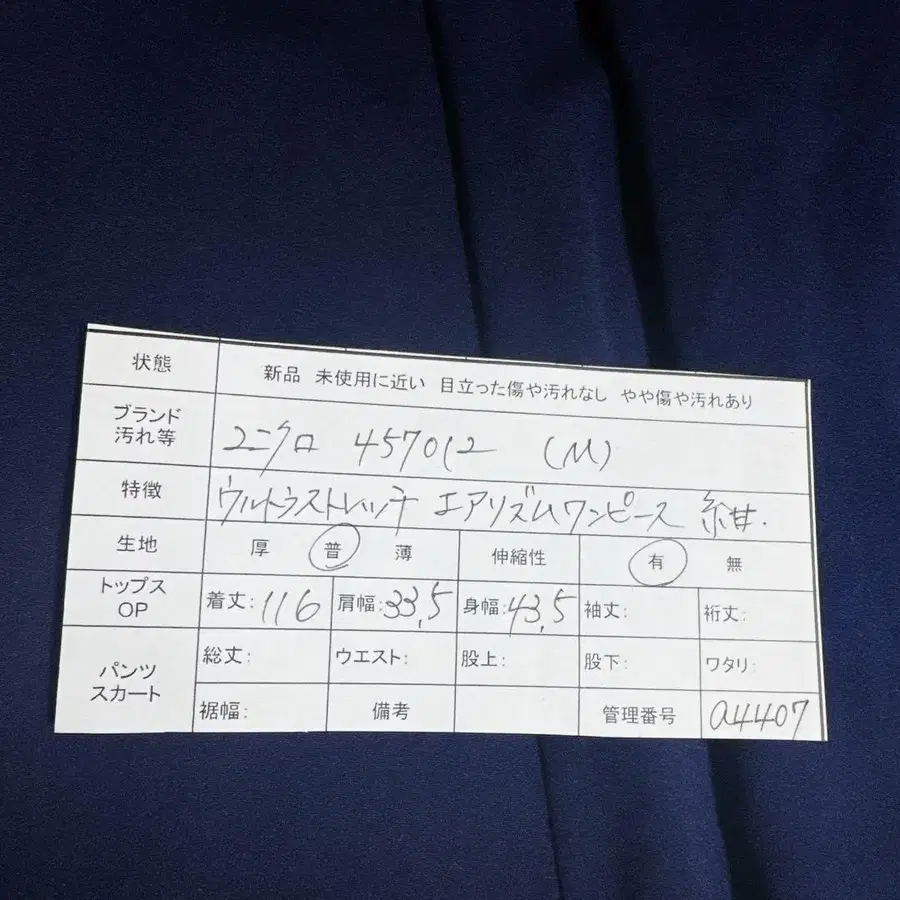 状態 新品 未使用に近い 目立った傷や汚れなし やや傷や汚れあり
ブランド
汚れ等 ユニクロ 457012 (M)
特徴 ウルトラストレッチ エアリズムワンピース 紺.
生地 厚 普 薄 伸縮性 有 無
トップス
OP 着丈:116 肩幅:33,5 身幅:43,5 袖丈: 裄丈:
パンツ
スカート 総丈: ウエスト: 股上: 股下: ワタリ:
裾幅: 備考 管理番号 a4407